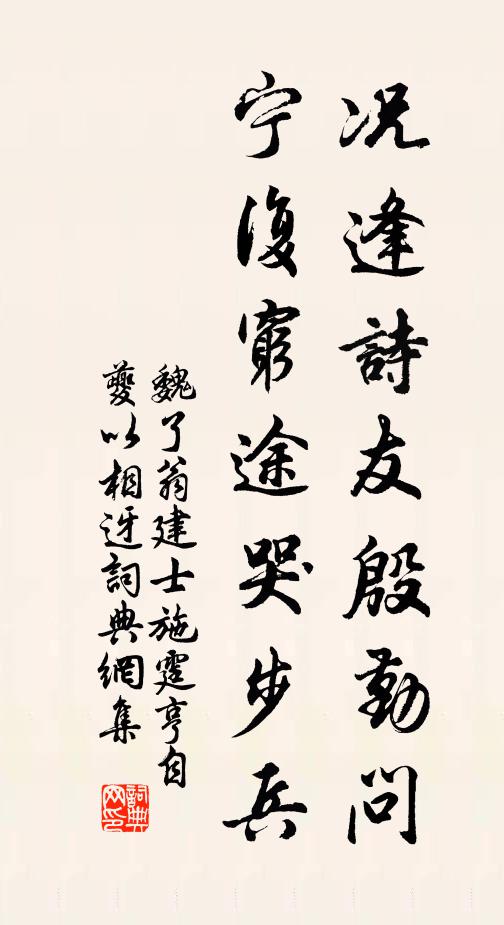 况逢詩友殷勤問
宁復窮途哭步兵
魏了翁建士施霆亨自
夔以相迓詞典網集
詞典
网印